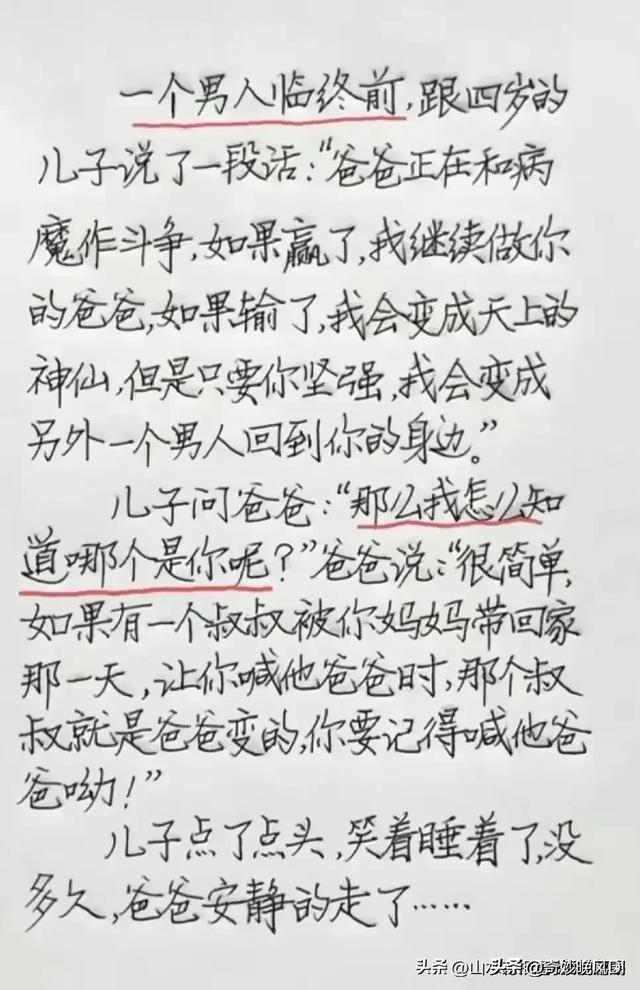 一个男人临终前,跟四岁的
儿子说了一段话:“爸爸正在和病
魔作斗争,如果赢了,我继续做你
的爸爸,如果输了,我会变成天上的
神仙,但是只要你坚强,我会变成
另外一个男人回到你的身边。”
儿子问爸爸:“那么我怎么知
道哪个是你呢?”爸爸说:“很简单,
如果有一个叔叔被你妈妈带回家
那一天,让你喊他爸爸时,那个叔
叔就是爸爸变的,你要记得喊他爸
爸呦!”
儿子点了点头,笑着睡着了,没
多久,爸爸安静的走了……
头条 @山
头条 @奇妙晚风团